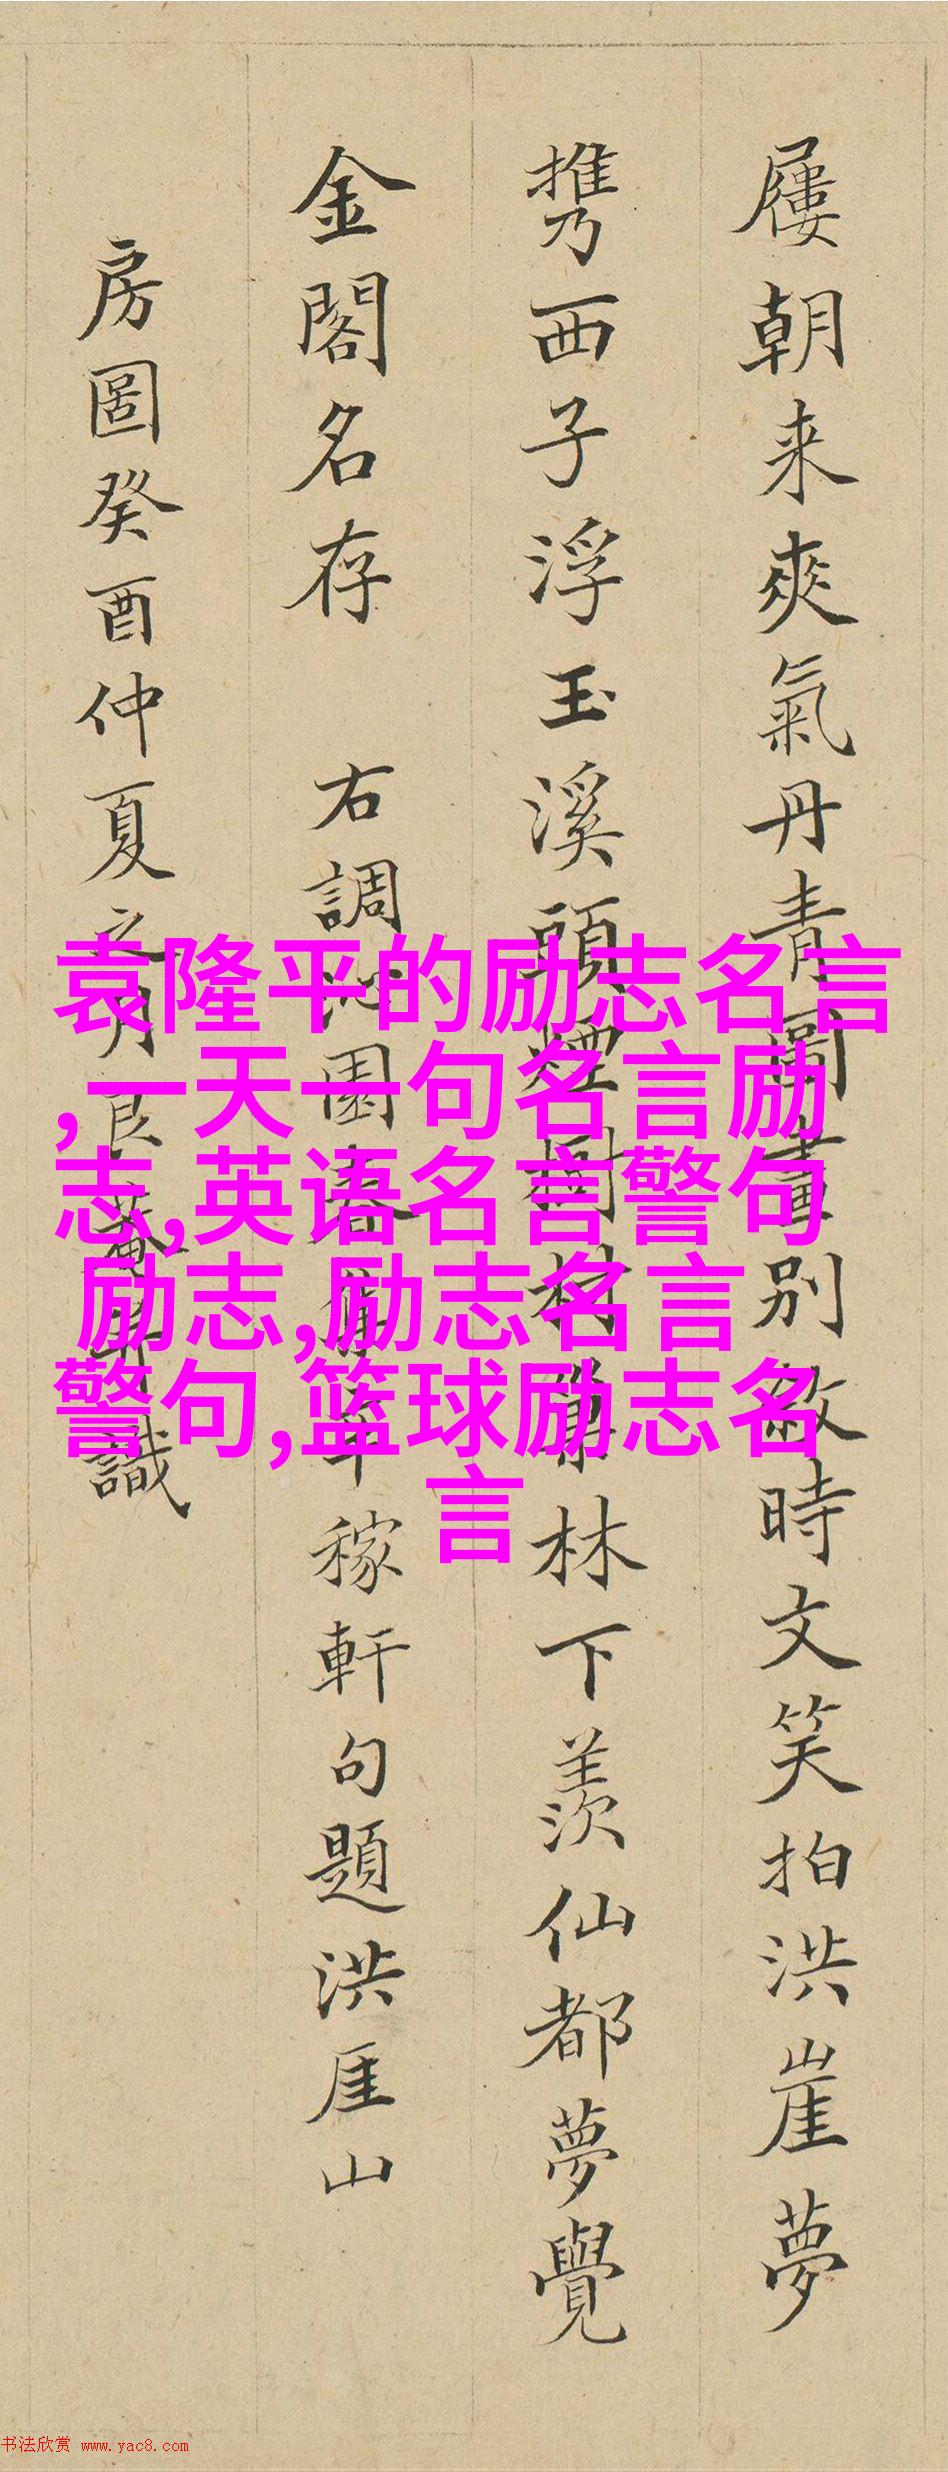 屨朝来爽氣丹青圖畫別敘時文笑拍洪崖夢
攜西子浮玉溪頭煙樹村巢林下羨仙都夢覺
金閣名存 右調沁園春集辛稼軒句題洪厓山
房圖癸酉仲夏之月艮菴并識
袁隆平的励志名言
,一天一句名言励
志,英语名言警句
励志,励志名言
警句,篮球励志名
言
书法欣赏 www.yac8.com